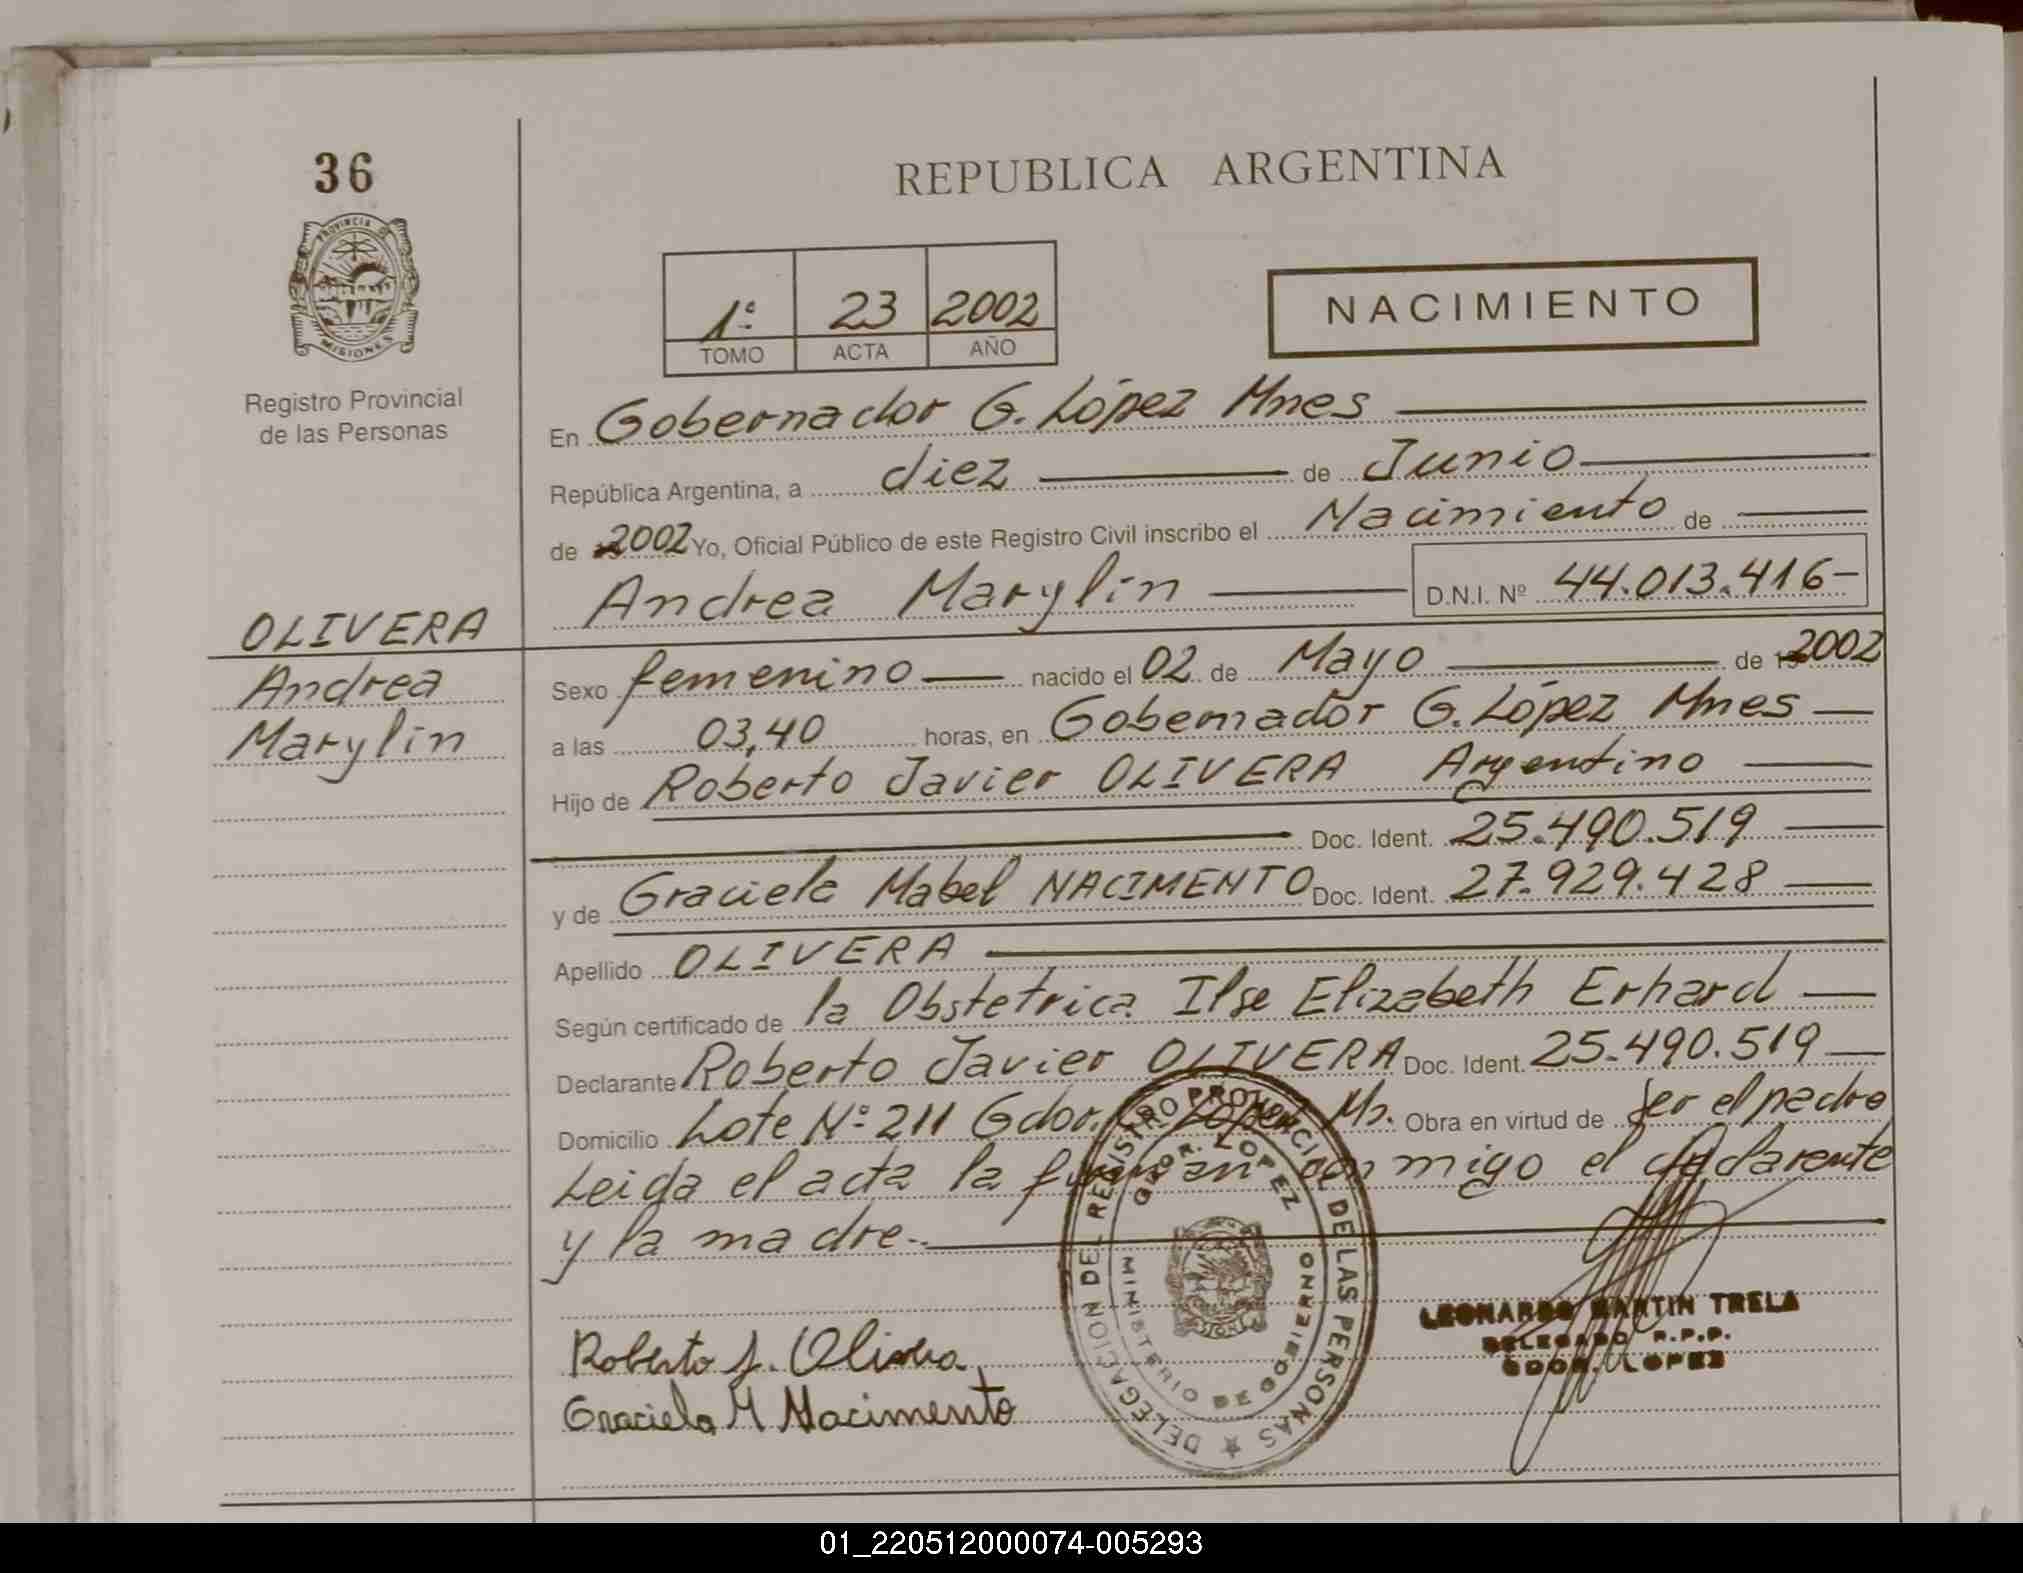 36
PROVINCIA DE
MISIONES
Registro Provincial
de las Personas
OLIVERA
Andrea
Marylin
REPUBLICA ARGENTINA
1º 23 2002
TOMO ACTA AÑO
NACIMIENTO
En Gobernador G. López Mnes
República Argentina, a diez de Junio
de 2002 Yo, Oficial Público de este Registro Civil inscribo el Nacimiento de
Andrea Marylin D.N.I. Nº 44.013.416-
Sexo femenino nacido el 02 de Mayo de 2002
a las 03,40 horas, en Gobernador G. López Mnes
Hijo de Roberto Javier OLIVERA Argentino
Doc. Ident. 25.490.519
y de Graciela Mabel NACIMENTO Doc. Ident. 27.929.428
Apellido OLIVERA
Según certificado de la Obstetrica Ilse Elizabeth Erhard
Declarante Roberto Javier OLIVERA Doc. Ident. 25.490.519
Domicilio Lote Nº 211 Gdor. G. López Ms. Obra en virtud de ser el padre
Leida el acta la firman conmigo el declarante
y la madre.
Roberto J. Olivera
Graciela M Nacimento
DELEGACION DEL REGISTRO PROVINCIAL DE LAS PERSONAS
GDOR. LOPEZ
MINISTERIO DE GOBIERNO
LEONARDO MARTIN TRELA
DELEGADO R.P.P.
GDOR. LOPEZ
01_220512000074-005293